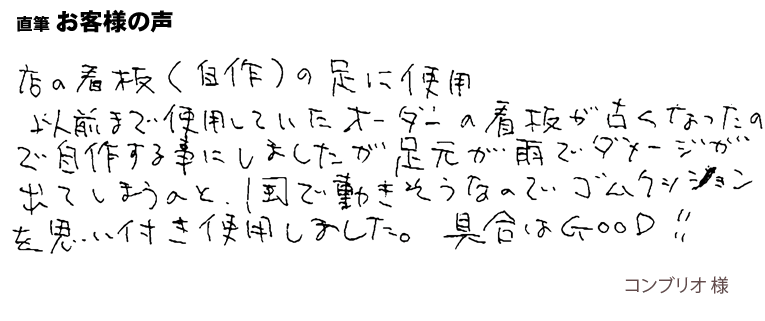 直筆 お客様の声
店の看板(自作)の足に使用
以前まで使用していたオーダーの看板が古くなったの
で自作する事にしましたが足元が雨でダメージが
出てしまうのと、風で動きそうなので、ゴムクッション
を思い付き使用しました。具合はGOOD!!
コンブリオ 様